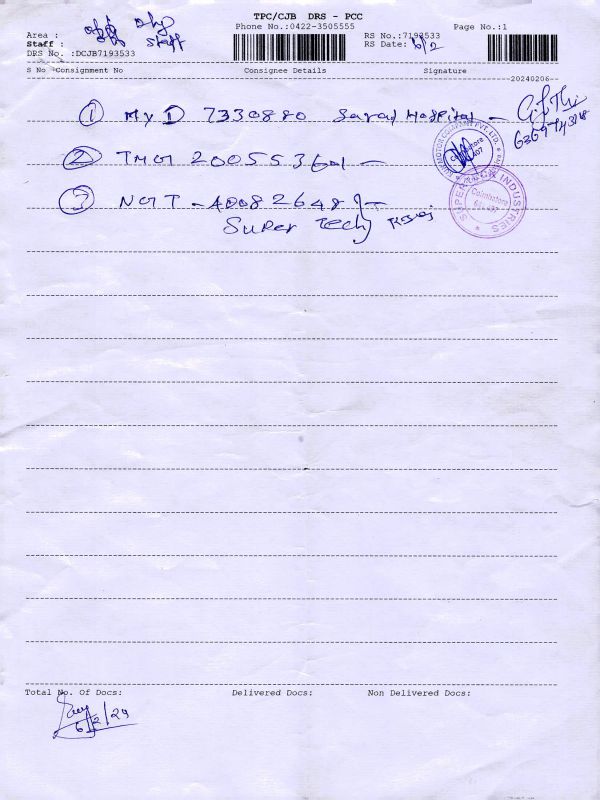 TPC/CJB DRS - PCC
Phone No.:0422-3505555
Page No.:1
Area :
Staff : staff
RS No.:7193533
RS Date: 6/2
DRS No. :DCJB7193533
S No Consignment No Consignee Details Signature
20240206
1 My D 7330880 Hospital -
2 TMG 200553601 -
3 NGT - 400826489 -
Super Tech
SUPER TECH INDUSTRIES
Coimbatore
Total No. Of Docs: Delivered Docs: Non Delivered Docs:
6/2/24